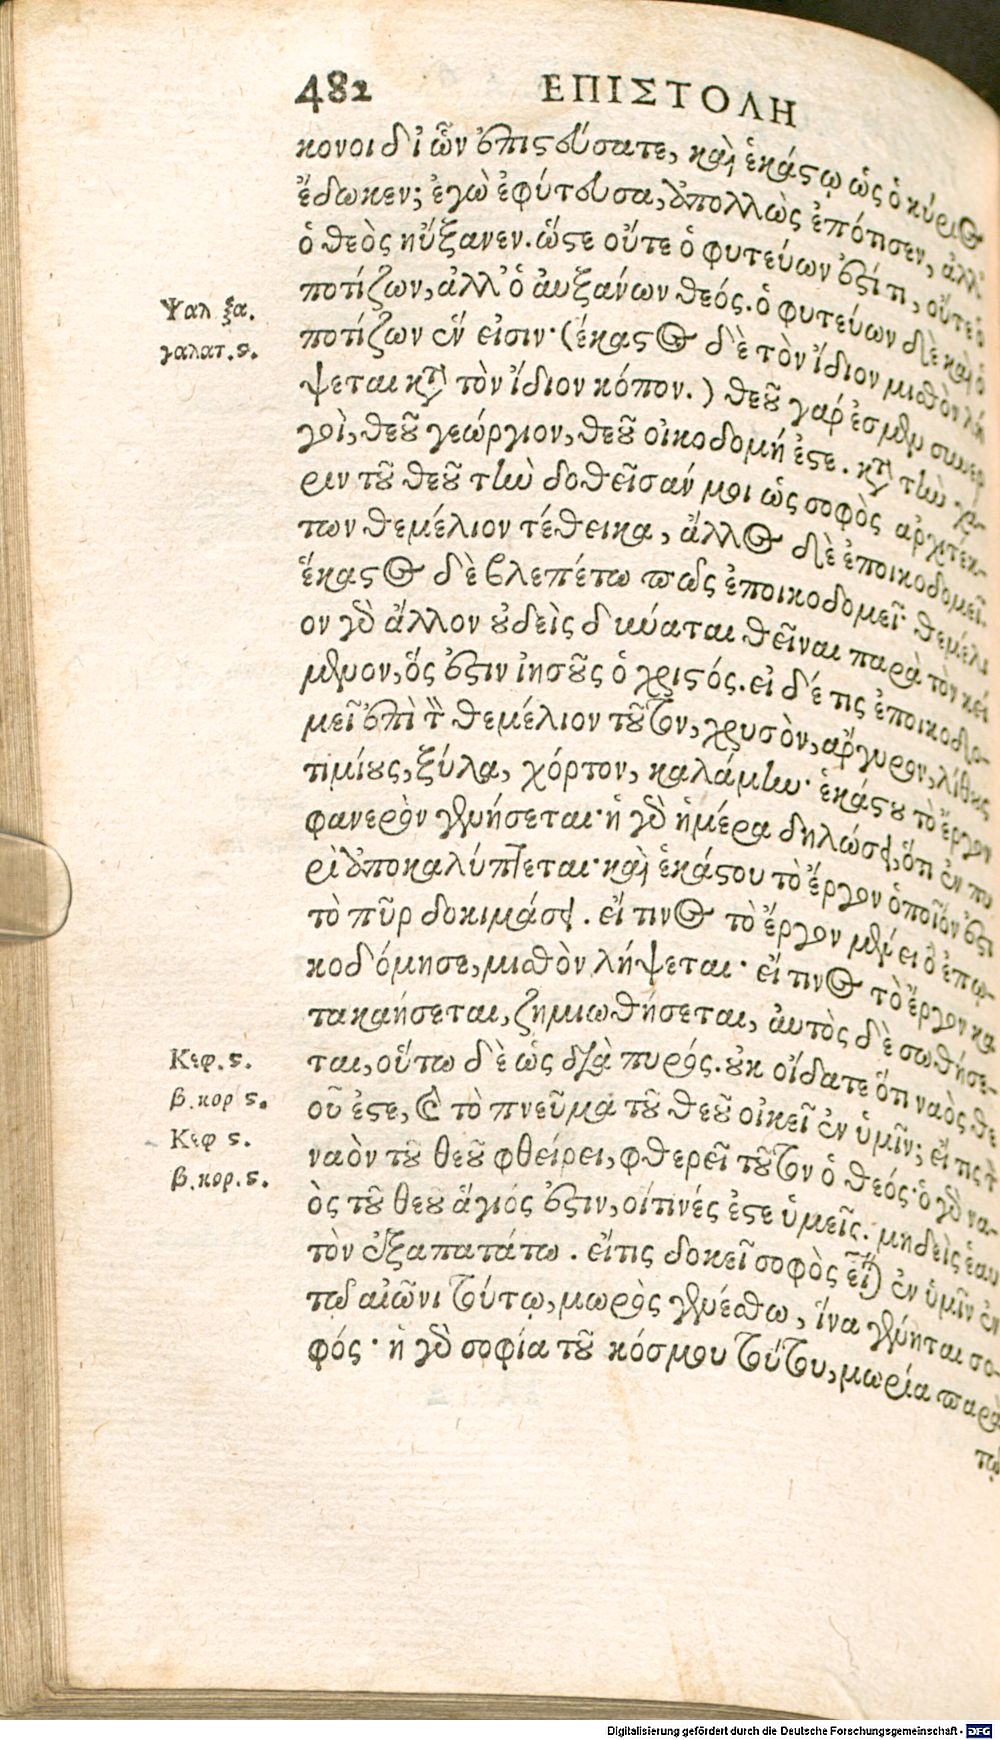 482 ΕΠΙΣΤΟΛΗ
κονοι δι' ὧν ἐπιστεύσατε, καὶ ἑκάστῳ ὡς ὁ κύριος
ἔδωκεν; ἐγὼ ἐφύτευσα, ἀπολλὼς ἐπότισεν, ἀλλ'
ὁ θεὸς ηὔξανεν. ὥστε οὔτε ὁ φυτεύων ἐστί τι, οὔτε ὁ
ποτίζων, ἀλλ' ὁ ἀυξάνων θεός. ὁ φυτεύων δὲ καὶ ὁ
Ψαλ ξα.
ποτίζων ἕν εἰσιν· (ἕκαστος δὲ τὸν ἴδιον μισθὸν λή
γαλατ. ς.
ψεται κατὰ τὸν ἴδιον κόπον.) θεοῦ γάρ ἐσμεν συνερ
γοὶ, θεοῦ γεώργιον, θεοῦ οἰκοδομή ἐστε. κατὰ τὴν χά-
ριν τοῦ θεοῦ τὴν δοθεῖσάν μοι ὡς σοφὸς ἀρχιτέκ-
των θεμέλιον τέθεικα, ἄλλος δὲ ἐποικοδομεῖ.
ἕκαστος δὲ βλεπέτω πῶς ἐποικοδομεῖ· θεμέλι
ον γὰρ ἄλλον οὐδεὶς δύναται θεῖναι παρὰ τὸν κεί
μενον, ὅς ἐστιν ἰησοῦς ὁ χριστός. εἰ δέ τις ἐποικοδο-
μεῖ ἐπὶ τὸν θεμέλιον τοῦτον, χρυσὸν, ἄργυρον, λίθους
τιμίους, ξύλα, χόρτον, καλάμην· ἑκάστου τὸ ἔργον
φανερὸν γενήσεται· ἡ γὰρ ἡμέρα δηλώσει, ὅτι ἐν πυ
ρὶ ἀποκαλύπτεται· καὶ ἑκάστου τὸ ἔργον ὁποῖόν ἐστι
τὸ πῦρ δοκιμάσει. εἴ τινος τὸ ἔργον μένει ὃ ἐπῳ-
κοδόμησε, μισθὸν λήψεται· εἴ τινος τὸ ἔργον κα
τακαήσεται, ζημιωθήσεται, ἀυτὸς δὲ σωθήσε-
Κεφ. ς.
ται, οὕτω δὲ ὡς διὰ πυρός. οὐκ οἴδατε ὅτι ναὸς θε
β. κορ ς.
οῦ ἐστε, καὶ τὸ πνεῦμα τοῦ θεοῦ οἰκεῖ ἐν ὑμῖν; εἴ τις τὸν
Κεφ ς.
ναὸν τοῦ θεοῦ φθείρει, φθερεῖ τοῦτον ὁ θεός· ὁ γὰρ να-
β. κορ. ς.
ὸς τοῦ θεοῦ ἅγιός ἐστιν, οἵτινές ἐστε ὑμεῖς. μηδεὶς ἑαυ
τὸν ἐξαπατάτω. εἴτις δοκεῖ σοφὸς εἶναι ἐν ὑμῖν ἐν
τῷ αἰῶνι τούτῳ, μωρὸς γενέσθω, ἵνα γένηται σο-
φός· ἡ γὰρ σοφία τοῦ κόσμου τούτου, μωρία παρὰ
τῷ
Digitalisierung gefördert durch die Deutsche Forschungsgemeinschaft - DFG